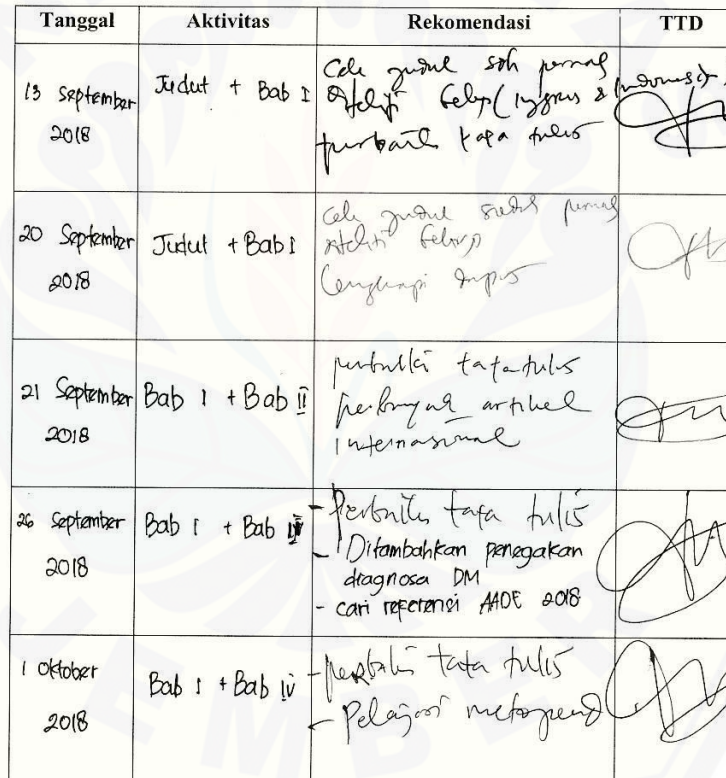 Tanggal Aktivitas Rekomendasi TTD
13 September
2018
Judul + Bab I
Cek judul sdh pernah
diteliti belum (inggris & Indonesia)
perbaiki tata tulis
20 September
2018
Judul + Bab I
Cek judul sudah pernah
diteliti belum
Lengkapi
21 September
2018
Bab I + Bab II
perbaiki tata tulis
perbanyak artikel
internasional
26 September
2018
Bab I + Bab
- Perbaiki tata tulis
- Ditambahkan penegakan
diagnosa DM
- cari referensi AADE 2018
1 Oktober
2018
Bab I + Bab IV
- perbaiki tata tulis
- Pelajari metopend
JEMBER